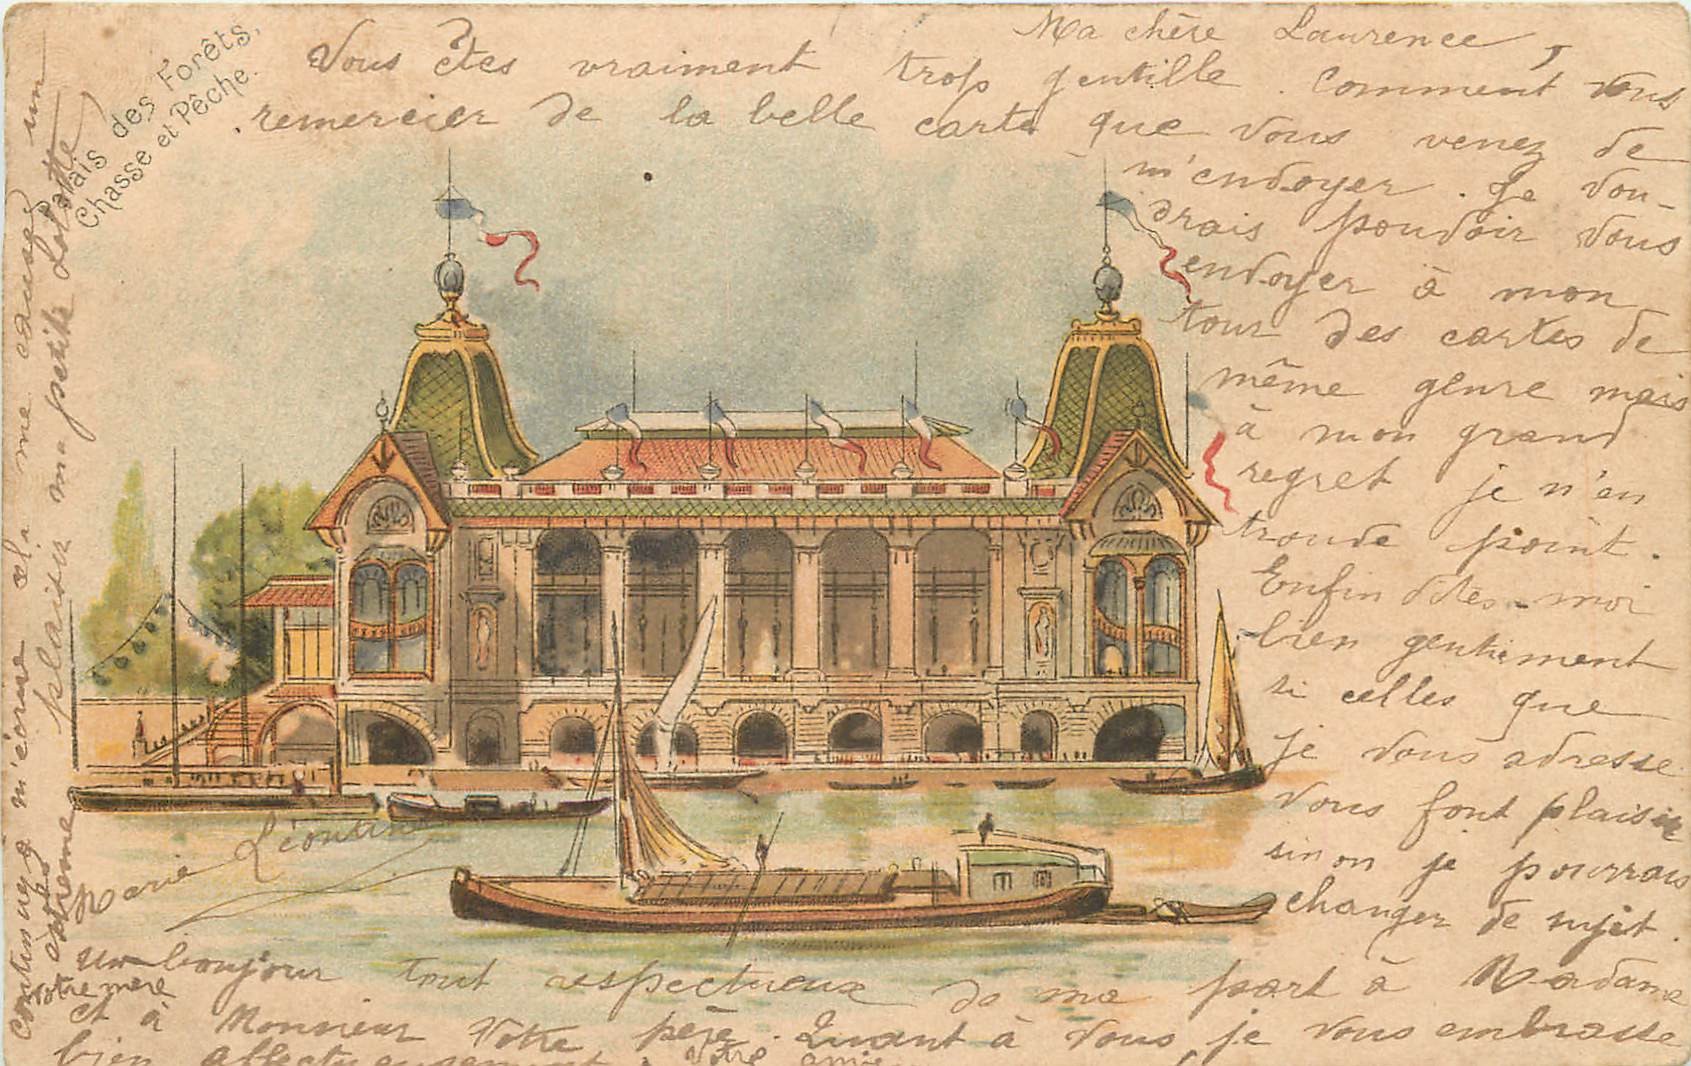 Palais des Forêts,
Chasse et Pêche.
Ma chère Laurence,
Vous êtes vraiment trop gentille. Comment vous
remercier de la belle carte que vous venez de
m'envoyer. Je vou-
drais pouvoir vous
envoyer à mon
tour des cartes de
même genre mais
à mon grand
regret je n'en
trouve point.
Enfin dites-moi
bien gentiment
si celles que
je vous adresse
vous font plaisir
sinon je pourrais
changer de sujet.
un bonjour tout respectueux de ma part à Madame
votre mère
et à Monsieur votre père. Quant à vous je vous embrasse
bien affectueusement votre amie
Marie Léontine
continuez à m'écrire cela me cause un
plaisir ma petite